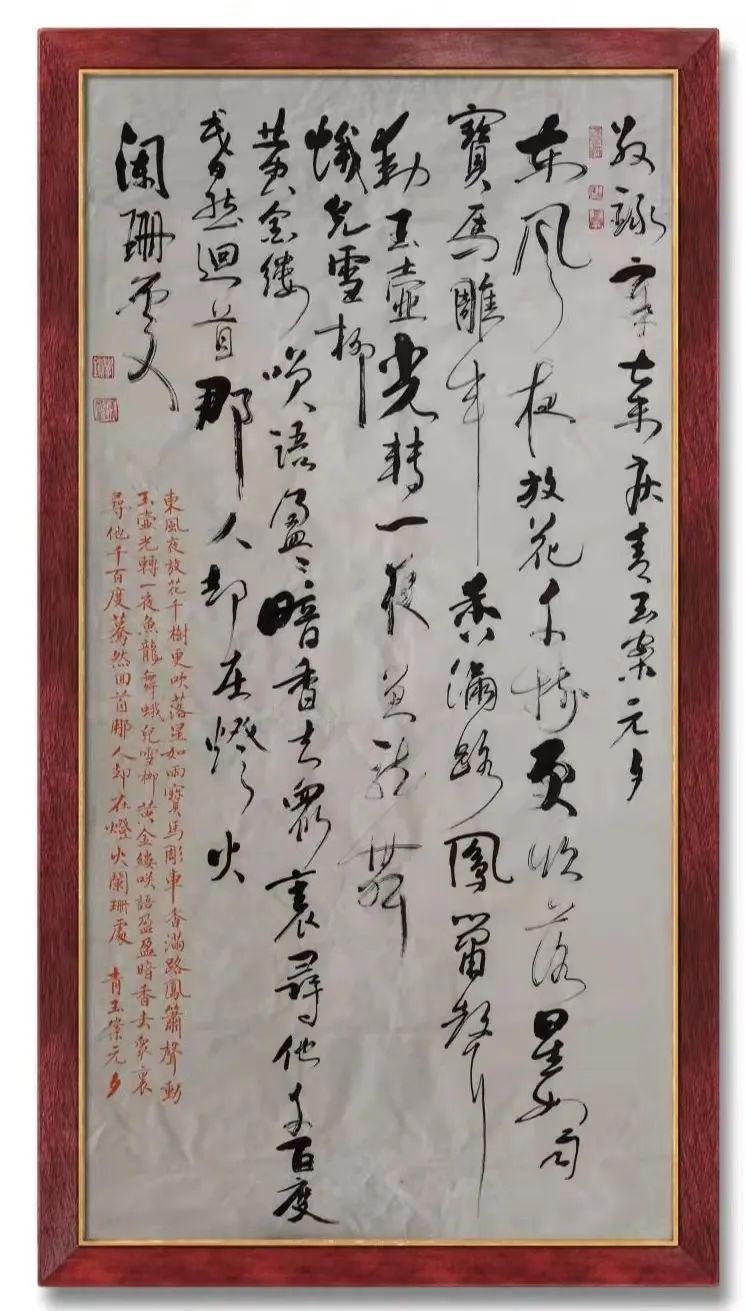 敬録辛棄疾青玉案元夕
東風夜放花千樹更吹落星如雨
寶馬雕車香滿路鳳簫聲
動玉壺光轉一夜魚龍舞
蛾兒雪柳
黄金縷咲語盈〻暗香去眾裏尋他千百度
驀然迴首那人却在燈火
闌珊處
東風夜放花千樹更吹落星如雨寶馬彫車香滿路鳳簫聲動
玉壺光轉一夜魚龍舞蛾兒雪柳黄金縷咲語盈盈暗香去衆裏
尋他千百度驀然回首那人却在燈火闌珊處 青玉案元夕